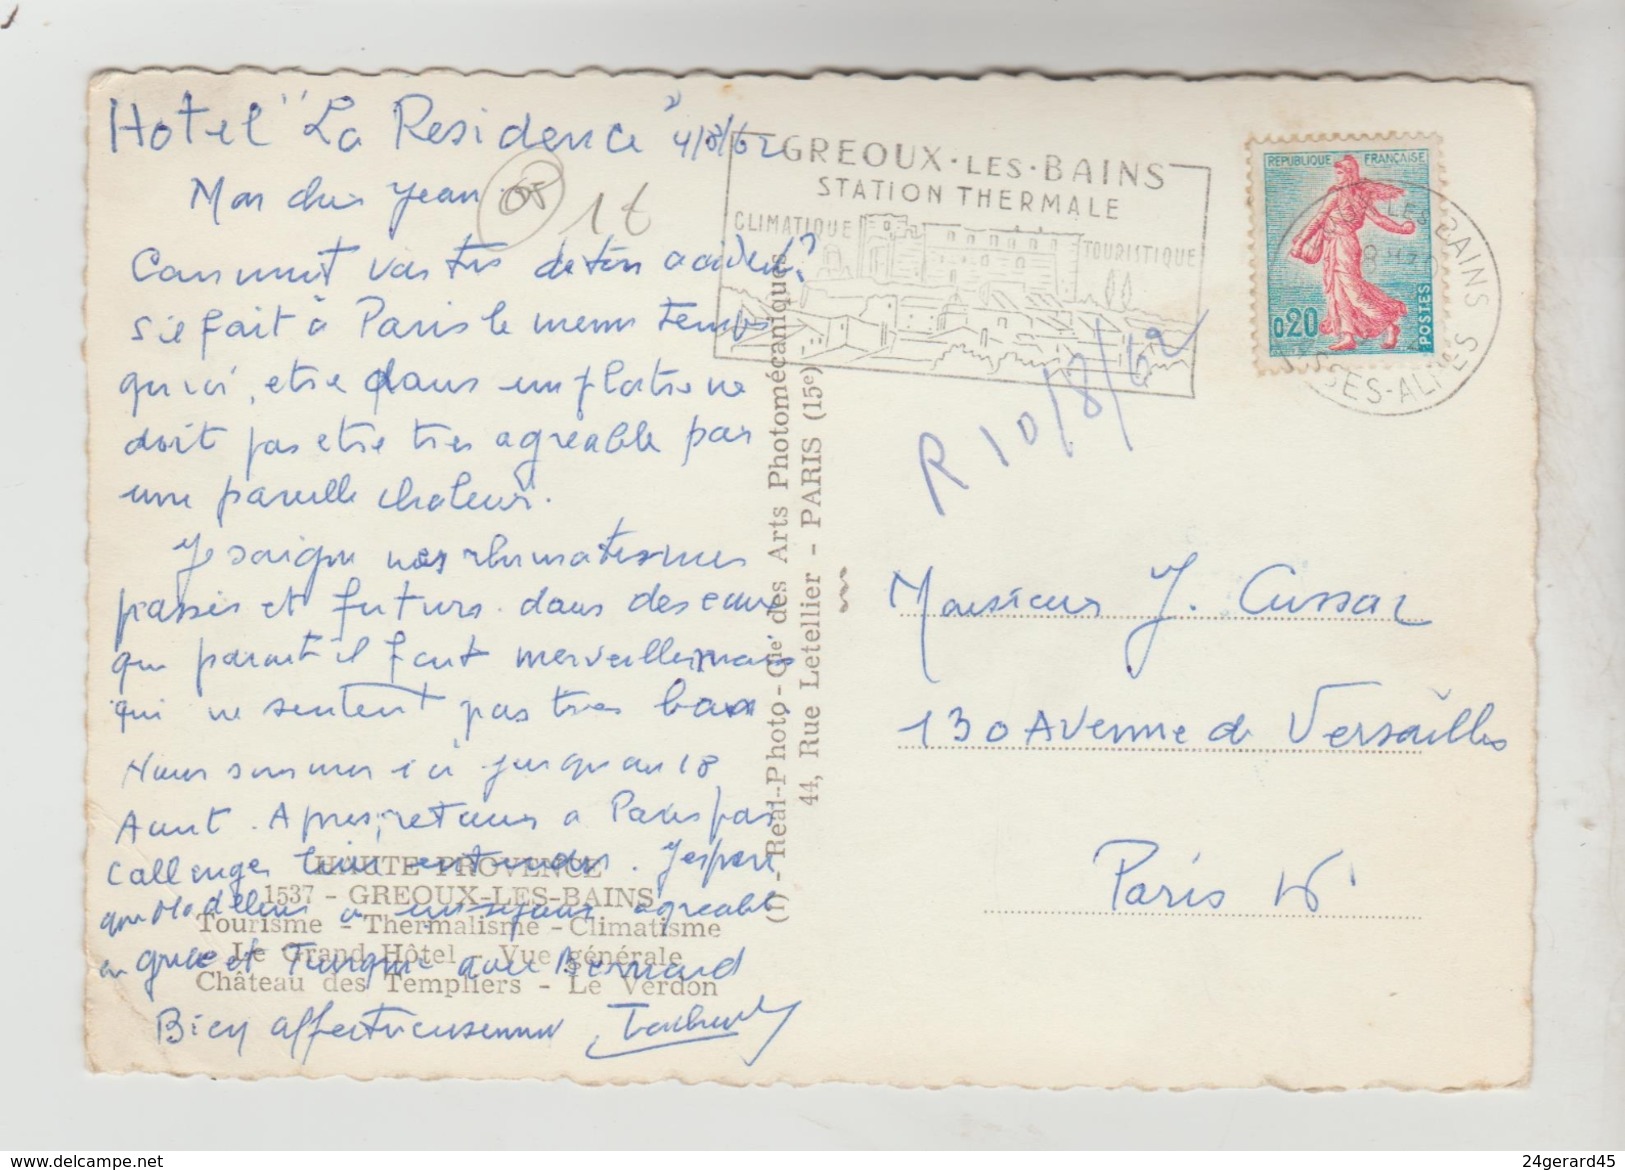 Hotel "La Residence" 4/8/62
Mon cher Jean
05 1 €
Comment vas tu de ton accident?
s'il fait à Paris le meme temps
qu'ici, etre dans un platre ne
doit pas etre tres agréable par
une pareille chaleur.
Je soigne nos rhumatismes
passés et futurs dans des eaux
qui parait il font merveilles mais
qui ne sentent pas tres bon
Nous sommes ici jusqu'au 18
Aout. Apres, retour a Paris par
Callenges bien entendu. J'espere
que Madeleine a un sejour agreable
en Grece et Turquie avec Bernard
Bien affectueusement
HAUTE PROVENCE
1537 - GREOUX-LES-BAINS
Tourisme - Thermalisme - Climatisme
Le Grand Hôtel - Vue générale
Château des Templiers - Le Verdon
(1) - Real-Photo - Cie des Arts Photomécaniques
44, Rue Letellier - PARIS (15e)
GREOUX·LES·BAINS
STATION THERMALE
CLIMATIQUE
TOURISTIQUE
REPUBLIQUE FRANÇAISE
0,20
POSTES
LES BAINS
BASSES-ALPES
R 10/8/62
Monsieur J. Cussac
130 Avenue de Versailles
Paris 16
24gerard45